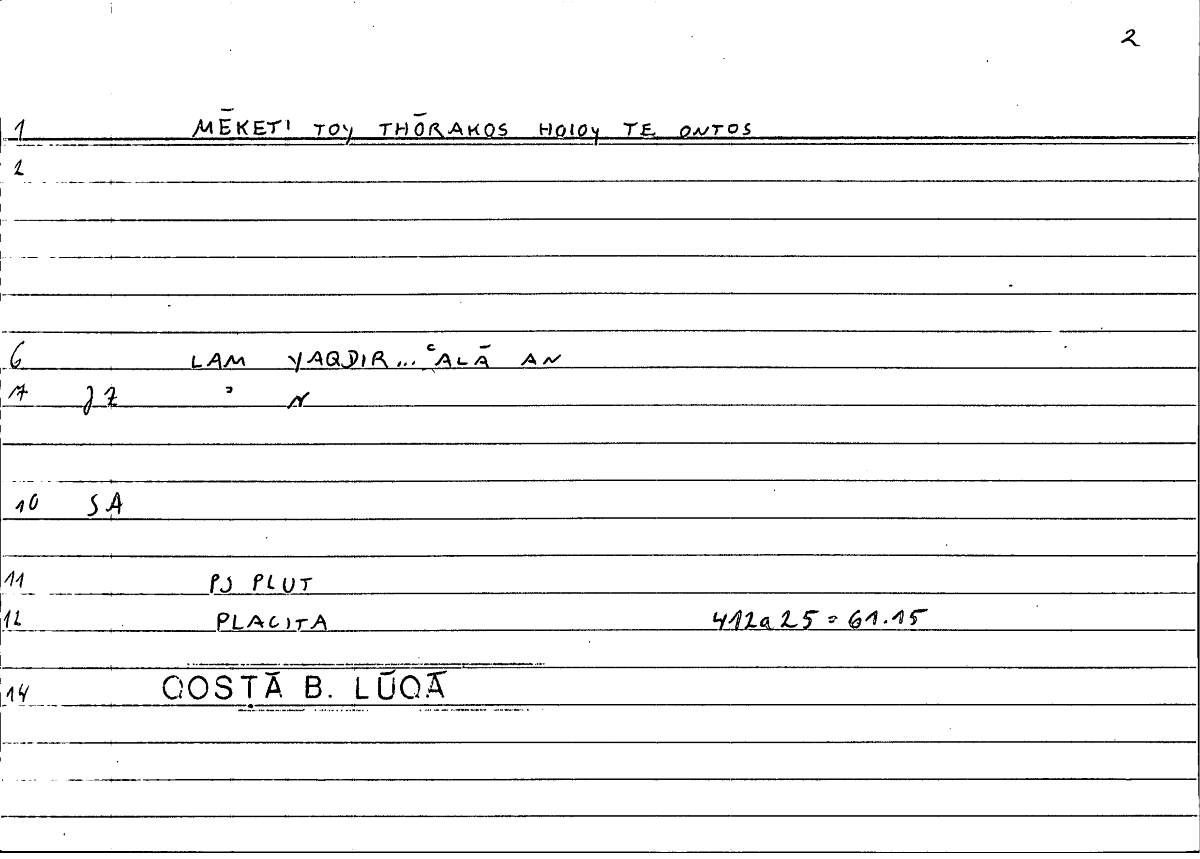 2
1 MĒKETI TOY THŌRAKOS HOIOY TE ONTOS
2
6 LAM YAQDIR... ʿALĀ AN
7 JZ " N
10 SA
11 PJ PLUT
12 PLACITA 412a25 = 61.15
14 QOSṬĀ B. LŪQĀ